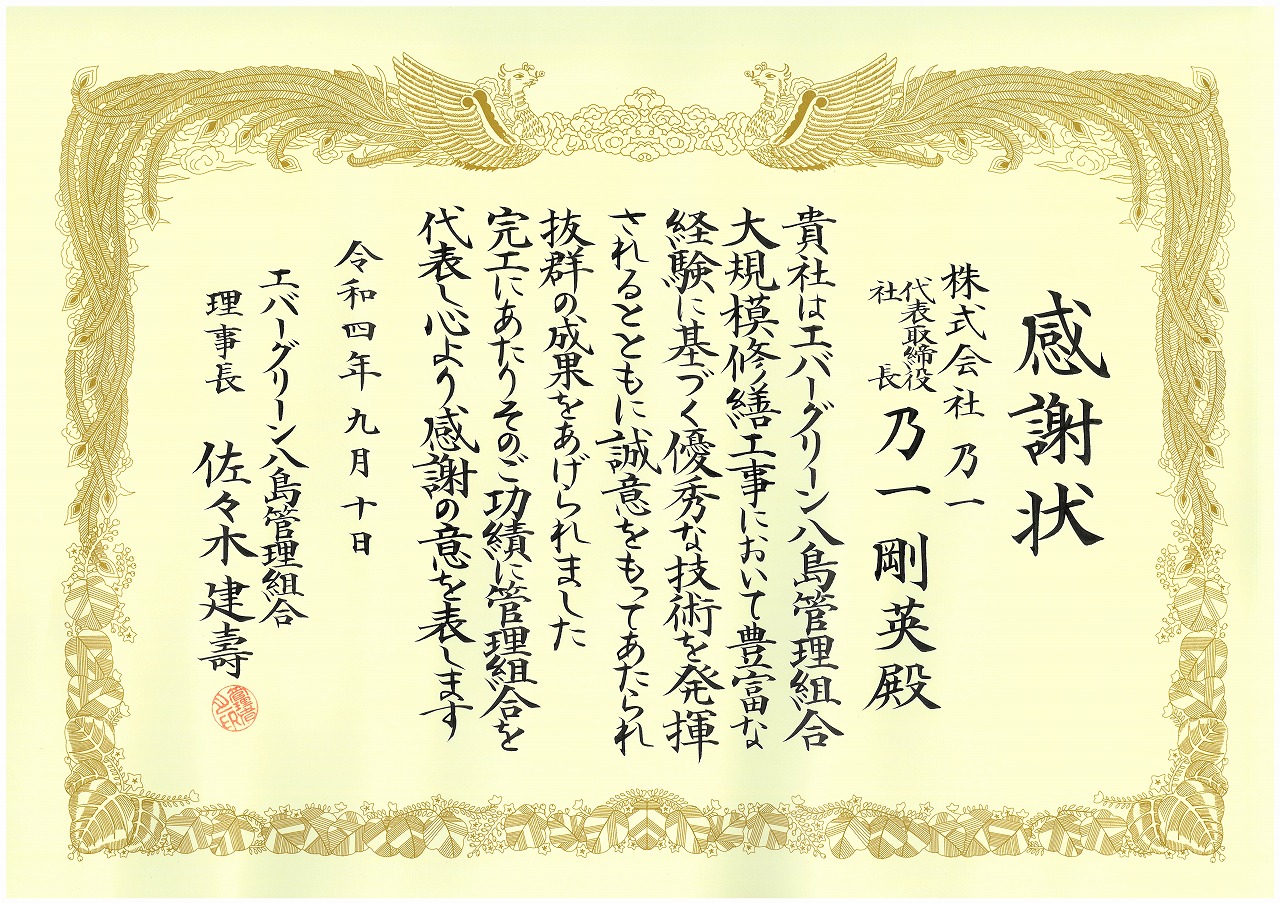 感謝状
株式会社 乃一
代表取締役
社長
乃一 剛英殿
貴社はエバーグリーン八島管理組合
大規模修繕工事において豊富な
経験に基づく優秀な技術を発揮
されるとともに誠意をもってあたられ
抜群の成果をあげられました
完工にあたりそのご功績に管理組合を
代表し心より感謝の意を表します
令和四年九月十日
エバーグリーン八島管理組合
理事長 佐々木建壽